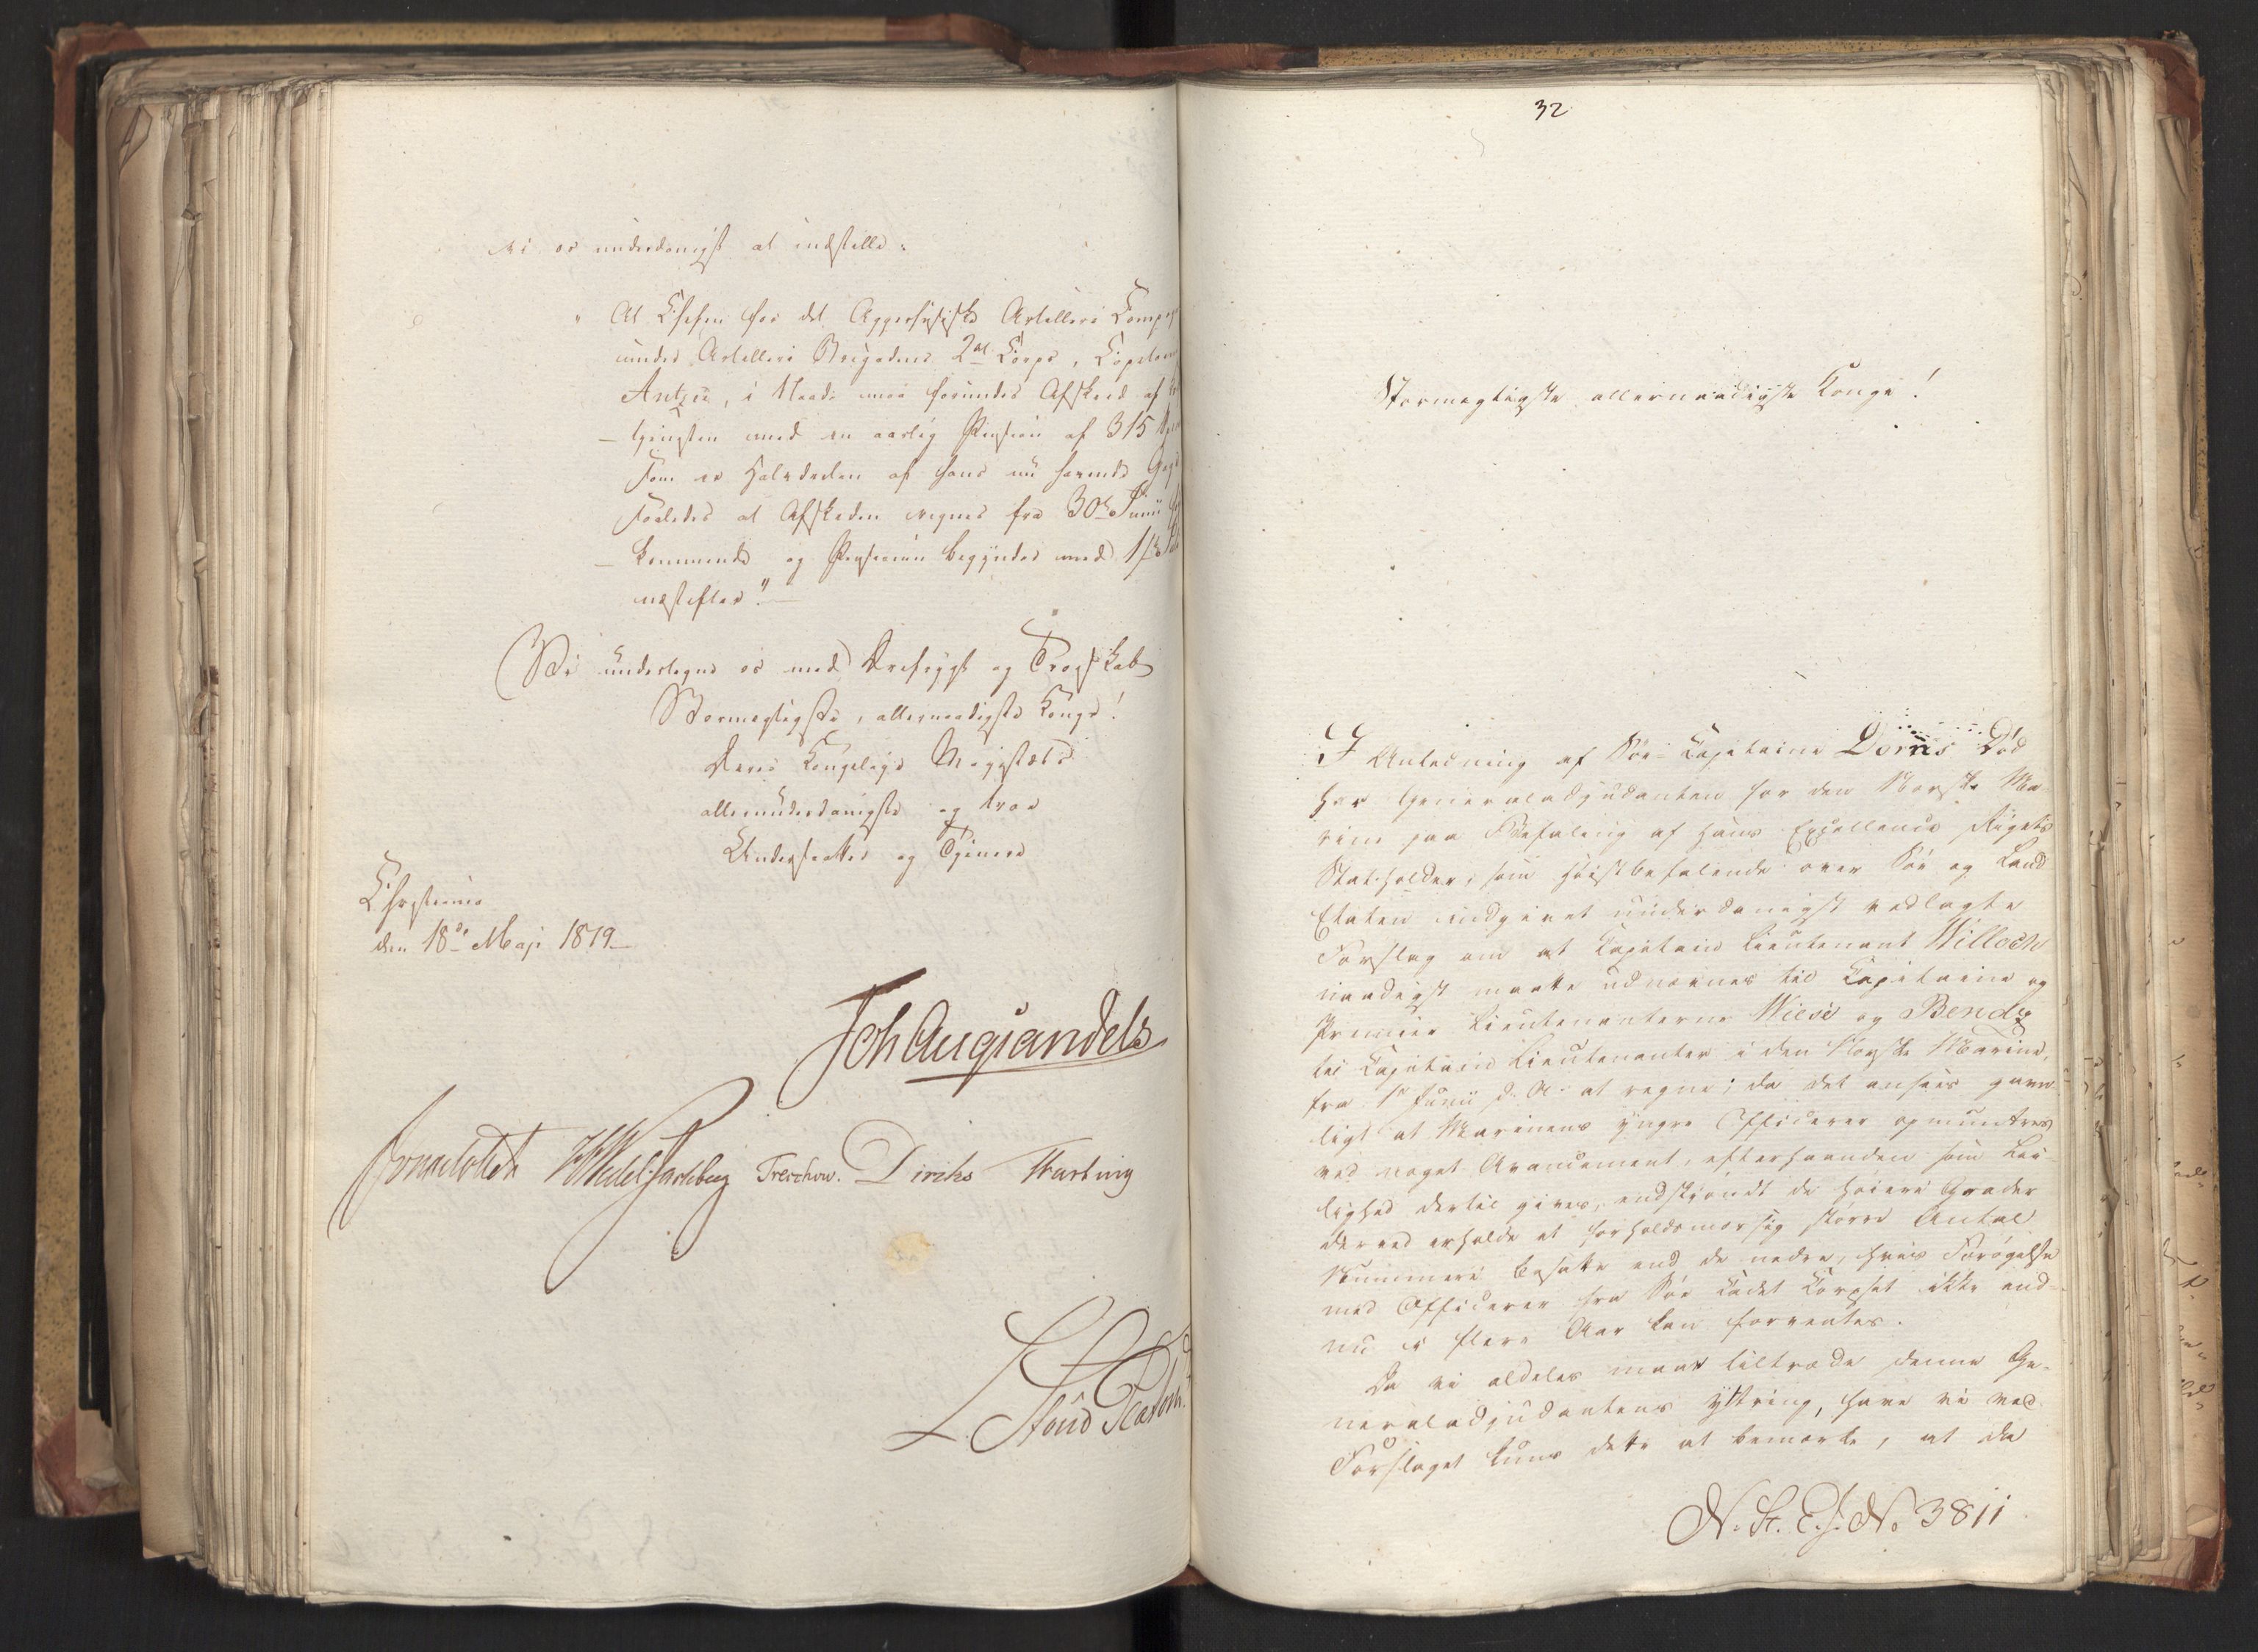 vi os underdanigst at indstille:
"At Chefen for det Aggershusiske Artillerie Comp
under Artillerie Brigadens 2det Corps, Capitain
Antzée, i Naade maa forundes Afskeed af
- tjenesten med en aarlig Pension af 315
som er Halvdelen af hans nu havende
saaledes at Afskeden regnes fra 30te Junii
- kommende og Pensionen begynder med 1ste
næstefter."
Vi undertegne os med Ærefrygt og Troskab
Stormægtigste, allernaadigste Konge!
Deres Kongelige Majestæts
allerunderdanigste og troe
Undersaatter og Tjenere
Christiania
den 18de Maji 1819
Joh Aug Sandels
Sommerhielm HWedel Jarlsberg Treschow. Diriks Fasting
32
Stormægtigste allernaadigste Konge!
I Anledning af Søe-Capitaine Dorns Død
har Generaladjudanten for den Norske Ma-
rine paa Befaling af Hans Excellence Rigets
Statholder, som høistbefalende over Søe og Land
Etaten indgivet underdanigst vedlagte
Forslag om at Capitain Lieutenant Willoch
naadigst maatte udnævnes til Capitaine og
Premier Lieutenanterne Wiese og Bendz
til Capitain Lieutenanter i den Norske Marine,
fra 1ste Junii d. A. at regne; da det ansees gavn-
ligt at Marinens yngre Officerer opmuntres
ved noget Avancement, efterhaanden som Lei-
lighed dertil gives, endskjøndt de høiere Grader
derved erholde et forholdsmæssig større Antal
Nummere besatte end de nedre, hvis Forøgelse
med Officerer fra Søe Cadet Corpset ikke end-
nu i flere Aar kan forventes.
Da vi aldeles maae tiltræde denne Ge-
neraladjudantens Yttring, have vi ved
Forslaget kuns dette at bemærke, at da
N. St. E. J. No 3811